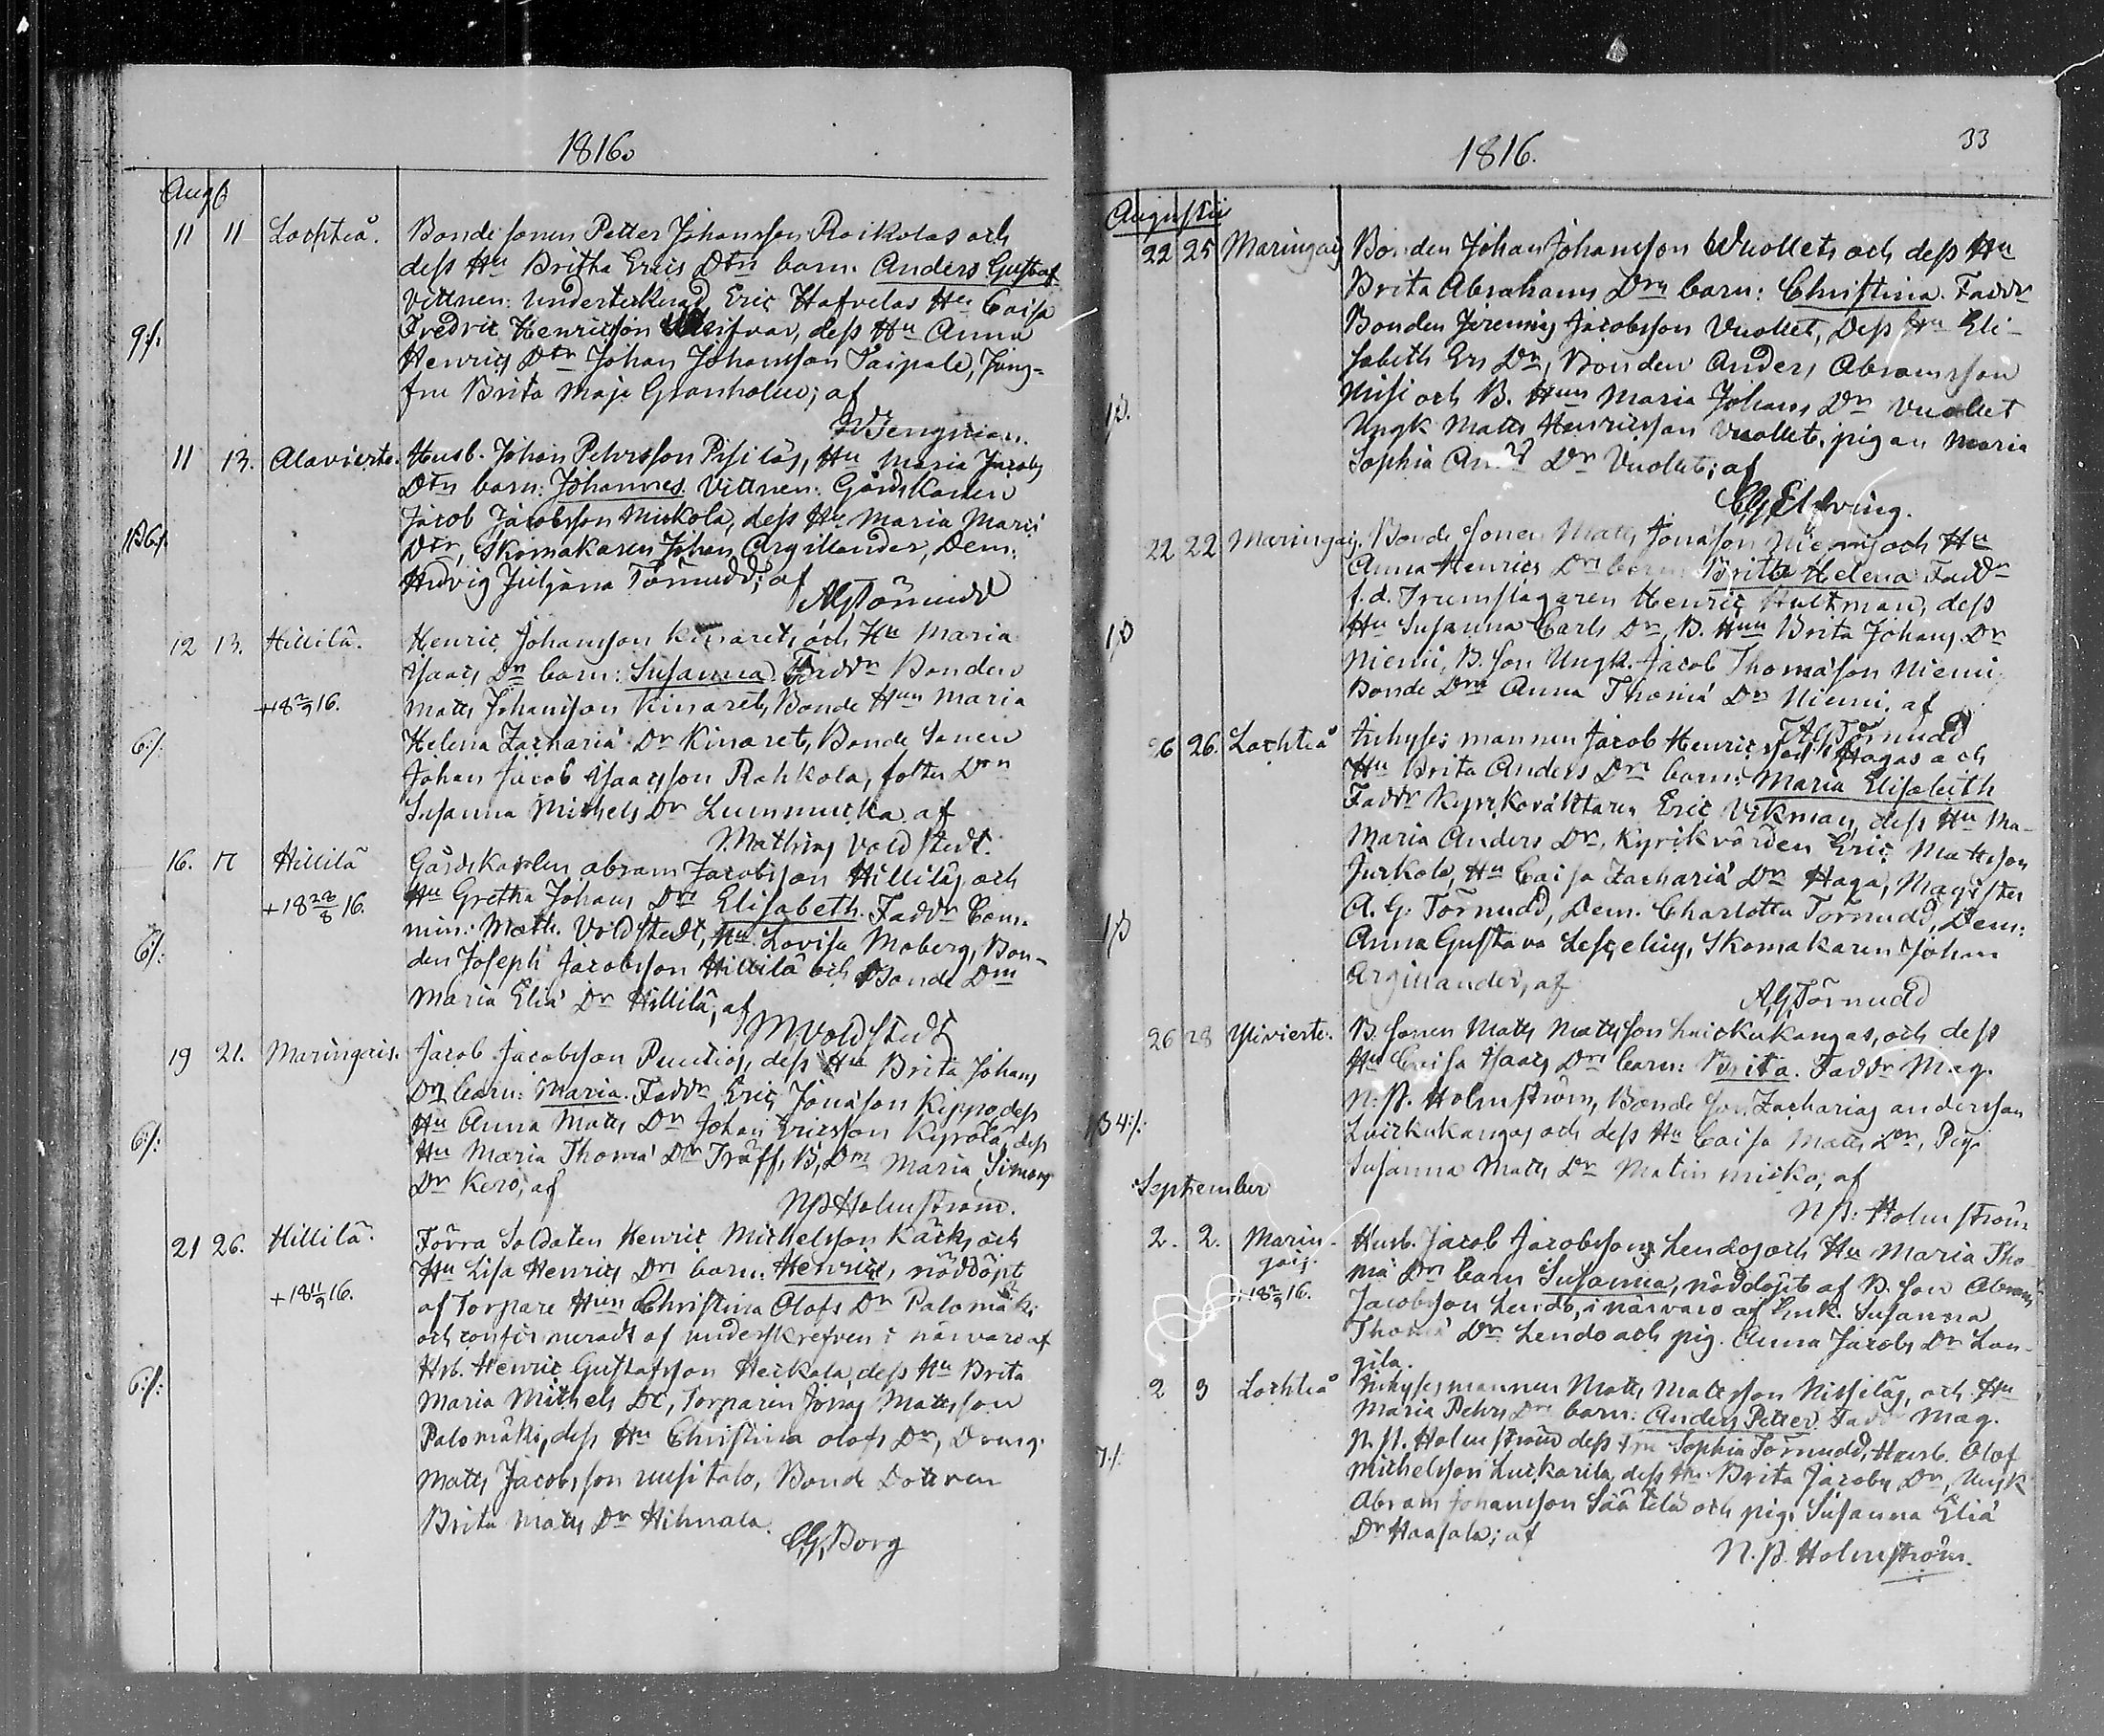 1816.
Augt
11 11 Lochteå. Bonde sonen Petter Johansson Raikolas och
dess Hu Britha Erics Dtrs barn: Anders Gustaf
Vittnen: Undertecknad, Eric Hafvelas Hu Caisa
9:/. Fredric Henricsson dess Hu Anna
Henrics Dtr Johan Johansson Paipale, Jung-
fru Brita Maja Granholm; af
11 13. Alavierte. Husb. Johan Pehrsson Pisiläs, Hu Maria Jacobs
Dtrs barn: Johannes. Vittnen: Gårdskarlen
Jacob Jacobsson Miskola, dess Hu Maria
Dtr, Skomakaren Johan Argillander, Dem:
Hedvig Juljana Törnudd; af
AGTörnudd
12 13. Hillilä. Henric Johansson Kinarets och Hu Maria
Isaacs Dr barn: Susanna. Faddr Bonden
+18 2/9 16. Matts Johansson Kinaret, Bonde Hun Maria
6:/. Helena Zachariä Dr Kinaret, Bonde Sonen
Johan Jacob Isaacsson Rahkola,
Susanna Michels Dr Lummucka. af
Mathias Voldstedt.
16. 17 Hillilä Gårdskarlen Abram Jacobsson Hilliläs och
+18 28/8 16. Hu Gretha Johans Drs Elisabeth. Faddr Com-
min: Math. Voldstedt, Hu Lovisa Moberg, Bon-
6:/: den Joseph Jacobsson Hillilä och Bonde Drn
Maria Eliä Dr Hillilä, af
MVoldstedt
19 21. Maringais. Jacob Jacobsson dess Hu Brita Johans
Drs barn: Maria. Faddr Eric Jonasson Keppo, dess
Hu Anna Matts Dr Johan Ericsson Kyrölä, dess
6:/: Hu Maria Thomä Dtr Träff, B. Drn Maria Simons
Dr Kero; af
NBHolmström.
21 26. Hillilä. Förra Soldaten Henric Michelsson Käcks och
Hu Lisa Henrics Drs barn: Henric, nöddöpt
+18 11/9 16. af Torpare Hun Christina Olofs Dr Palomäki
och confirmeradt af underskrefven i närvaro af
6:/: Hsb. Henric Gustafsson Heikala, dess Hu Brita
Maria Michels Dr, Torparen Jonas Mattsson
Palomäki, dess Hu Christina Olofs Dr, Dreng.
Matts Jacobsson Uusitalo, Bonde Dotren
Brita Matts Dr Hihnala.
CG Borg
1816. 33
Augusti
22 25 Maringais Bonden Johan Johansson Wuollets och dess Hu
Brita Abrahams Drs barn: Christina. Faddr
Bonden Jeremias Jacobsson Vuollet, Dess Hu Eli-
sabeth Ers Dr, Bonden Anders Abramsson
Niisi och B. Hun Maria Johans Dr Vuollet
Ungk Matts Henricsson Vuollet, pigan Maria
Sophia Dr Vuollet; af
CGElfving.
22 22 Maringais. Bonde Sonen Matts Jonasson Niemis och Hu
Anna Henrics Drs barn: Britta Helena. Faddr
f.d. Trumslagaren Henric Hultman, dess
Hu Susanna Carls Dr, B. Hun Brita Johans Dr
Niemi, B. son Ungk. Jacob Thomasson Niemi,
Bonde Drn Anna Thomä Dr Niemi, af
AGTörnudd
26 26. Lochteå Inhyses mannen Jacob Henricsson Hagas och
Hu Brita Anders Drs barn: Maria Elisabeth
Faddr Kyrckoväktaren Eric Vikman, dess Hu Ma-
Maria Anders Dr, Kyrckvärden Eric Mattsson
Jurkola, Hu Caisa Zachariä Dr Haga, Magister
A. G. Törnudd, Dem. Charlotta Törnudd, Dem:
Anna Gustava Leseelius, Skomakaren Johan
Argillander, af
AGTörnudd
26 28 Ylivierte. B. Sonen Matts Mattsson Luickukangas, och dess
Hu Caisa Isaacs Drs barn: Brita. Faddr Mag.
N. B. Holmström, Bonde son Zacharias Andersson
Luickukangas och dess Hu Caisa Matts Dr, Pig.
Susanna Matts Dr Matinmicko; af
N B: Holmström
September
2. 2. Marin- Husb. Jacob Jacobsson Lendos och Hu Maria Tho-
gais. mä Drs barn Susanna, nöddöpt af B. son Abram
18 2/9 16. Jacobsson Lendo, i närvaro af Enk. Susanna
Thomä Dr Lendo och pig. Anna Jacobs Dr Lan-
gila.
2 3 Lochteå Inhyses mannen Matts Mattsson Nissiläs, och Hu
Maria Pehrs Drs barn: Anders Petter. Faddr Mag.
7:/. N. B. Holmström dess fru Sophia Törnudd, Husb. Olof
Michelsson Luckarila, dess Hu Brita Jacobs Dr, Ungk
Abram Johansson Säätelä och pig. Susanna Eliä
Dr Haasala; af
N. B. Holmström.